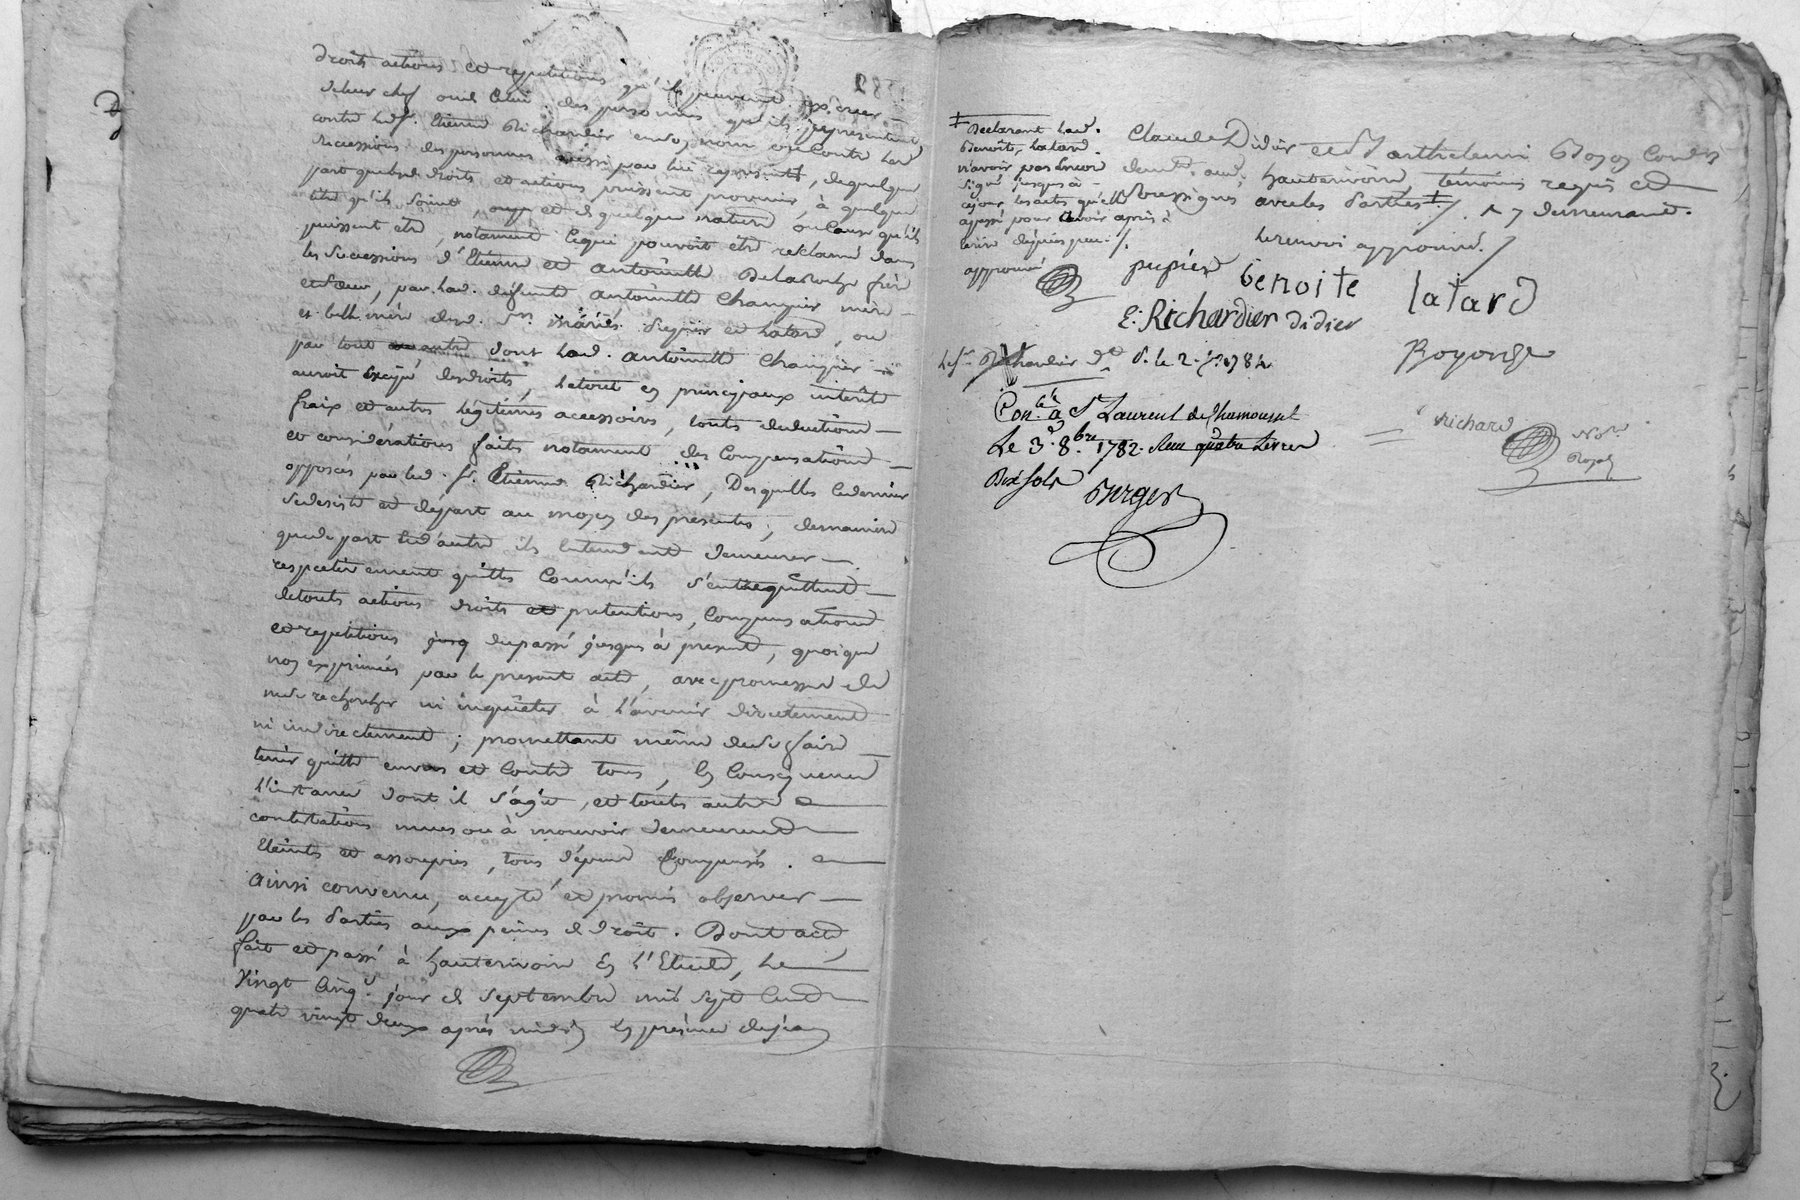 droits actions et repetitions qu'ils peuvent exercer
de leur chef ou de celui des personnes qu'ils representent
contre led. sr. Etienne Richardier en son nom ou contre les
successions des personnes aussi par lui representés, de quelque
part que lesd. droits et actions puissent provenir, à quelque
titre qu'ils soient, et de quelque nature ou cause qu'ils
puissent etre, notament ce qui pouvoit etre reclamé dans
les successions d'Etienne et antoinette Delaroche frere
et soeur, par lad. defunte antoinette Changier mere
et belle mere desd. srs. mariés et Latard, ou
par tout autre dont lad. antoinette Changier
auroit les droits, le tout en principaux interêts
fraix et autres legitimes accessoires, toute deduction
et considérations faites notament des Compensations
opposées par led. sr. Etienne Richardier, Desquelles ce dernier
se desiste et départ au moyen des presentes, demaniere
que de part et d'autre ils entendent demeurer
respectivement quittes comm'ils s'entrequittent
de touts actions droits et pretentions, Compensations
et repetitions du passé jusques à present, quoique
non exprimées par le present acte, avec promesse de
ne se rechercher ni inquiéter à l'avenir directement
ni indirectement; promettant même de se faire
tenir quitte envers et contre tous, En Consequence
l'instance dont il s'agit, et toutes autres
contestations mues ou à mouvoir demeurent
Eteintes et assoupies, tous dépens Compensés.
ainsi convenu, accepté et promis observer
par les Parties aux peines de droit. Dont acte
fait et passé à hauterivoire En l'Etude, Le
Vingt Cinq.e jour de septembre mil sept Cent
quatre vingt deux après midi En presence de
Claude Didier et sr Barthelemi Royon
demt. aud. hauterivoire témoins requis et
soussignés avec les Parties ‡/.
‡ Declarant lad.
Benoite Latard
n'avoir pas Encor
signé jusques à
ce jour les actes qu'elle
a passé pour avoir apris à
ecrire depuis peu /.
approuvé
Le renvoi approuvé /
pupier Benoite latard
E: Richardier didier
Royon
Le sr. Richardier
Con.lé à St Laurent de Chamousset
Le 3. 8.bre 1782. Reçu quatre Livres
Dix sols Berger
Richard Not.re
Royal